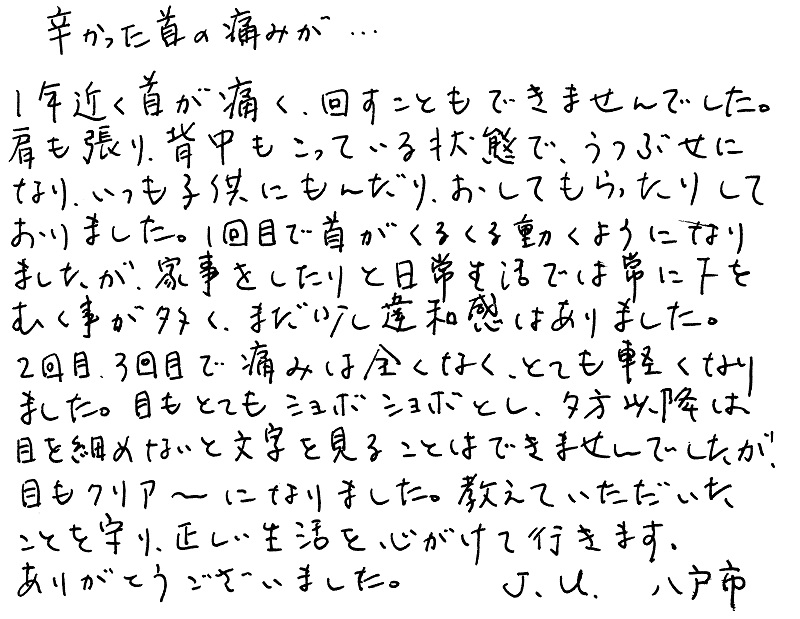 辛かった首の痛みが…
1年近く首が痛く、回すこともできませんでした。
肩も張り、背中もこっている状態で、うつぶせに
なり、いつも子供にもんだり、おしてもらったりして
おりました。1回目で首がくるくる動くようになり
ましたが、家事をしたりと日常生活では常に下を
むく事が多く、まだ少し違和感はありました。
2回目、3回目で痛みは全くなく、とても軽くなり
ました。目もとてもショボショボとし、夕方以降は
目を細めないと文字を見ることはできませんでしたが、
目もクリア〜になりました。教えていただいた
ことを守り、正しい生活を心がけて行きます。
ありがとうございました。 J.U. 八戸市